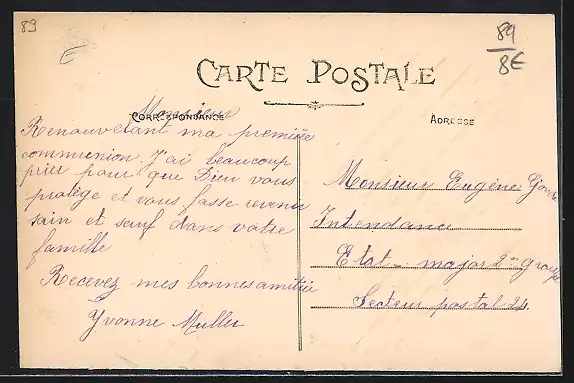 89
E
89
8€
CARTE POSTALE
CORRESPONDANCE
ADRESSE
Monsieur
Renouvelant ma première
communion J'ai beaucoup
prier pour que Dieu vous
protège et vous fasse revenir
sain et sauf dans votre
famille
Recevez mes bonnes amitiés
Yvonne Muller
Monsieur Eugène
Intendance
Etat-major 2me Groupe
Secteur postal 24.